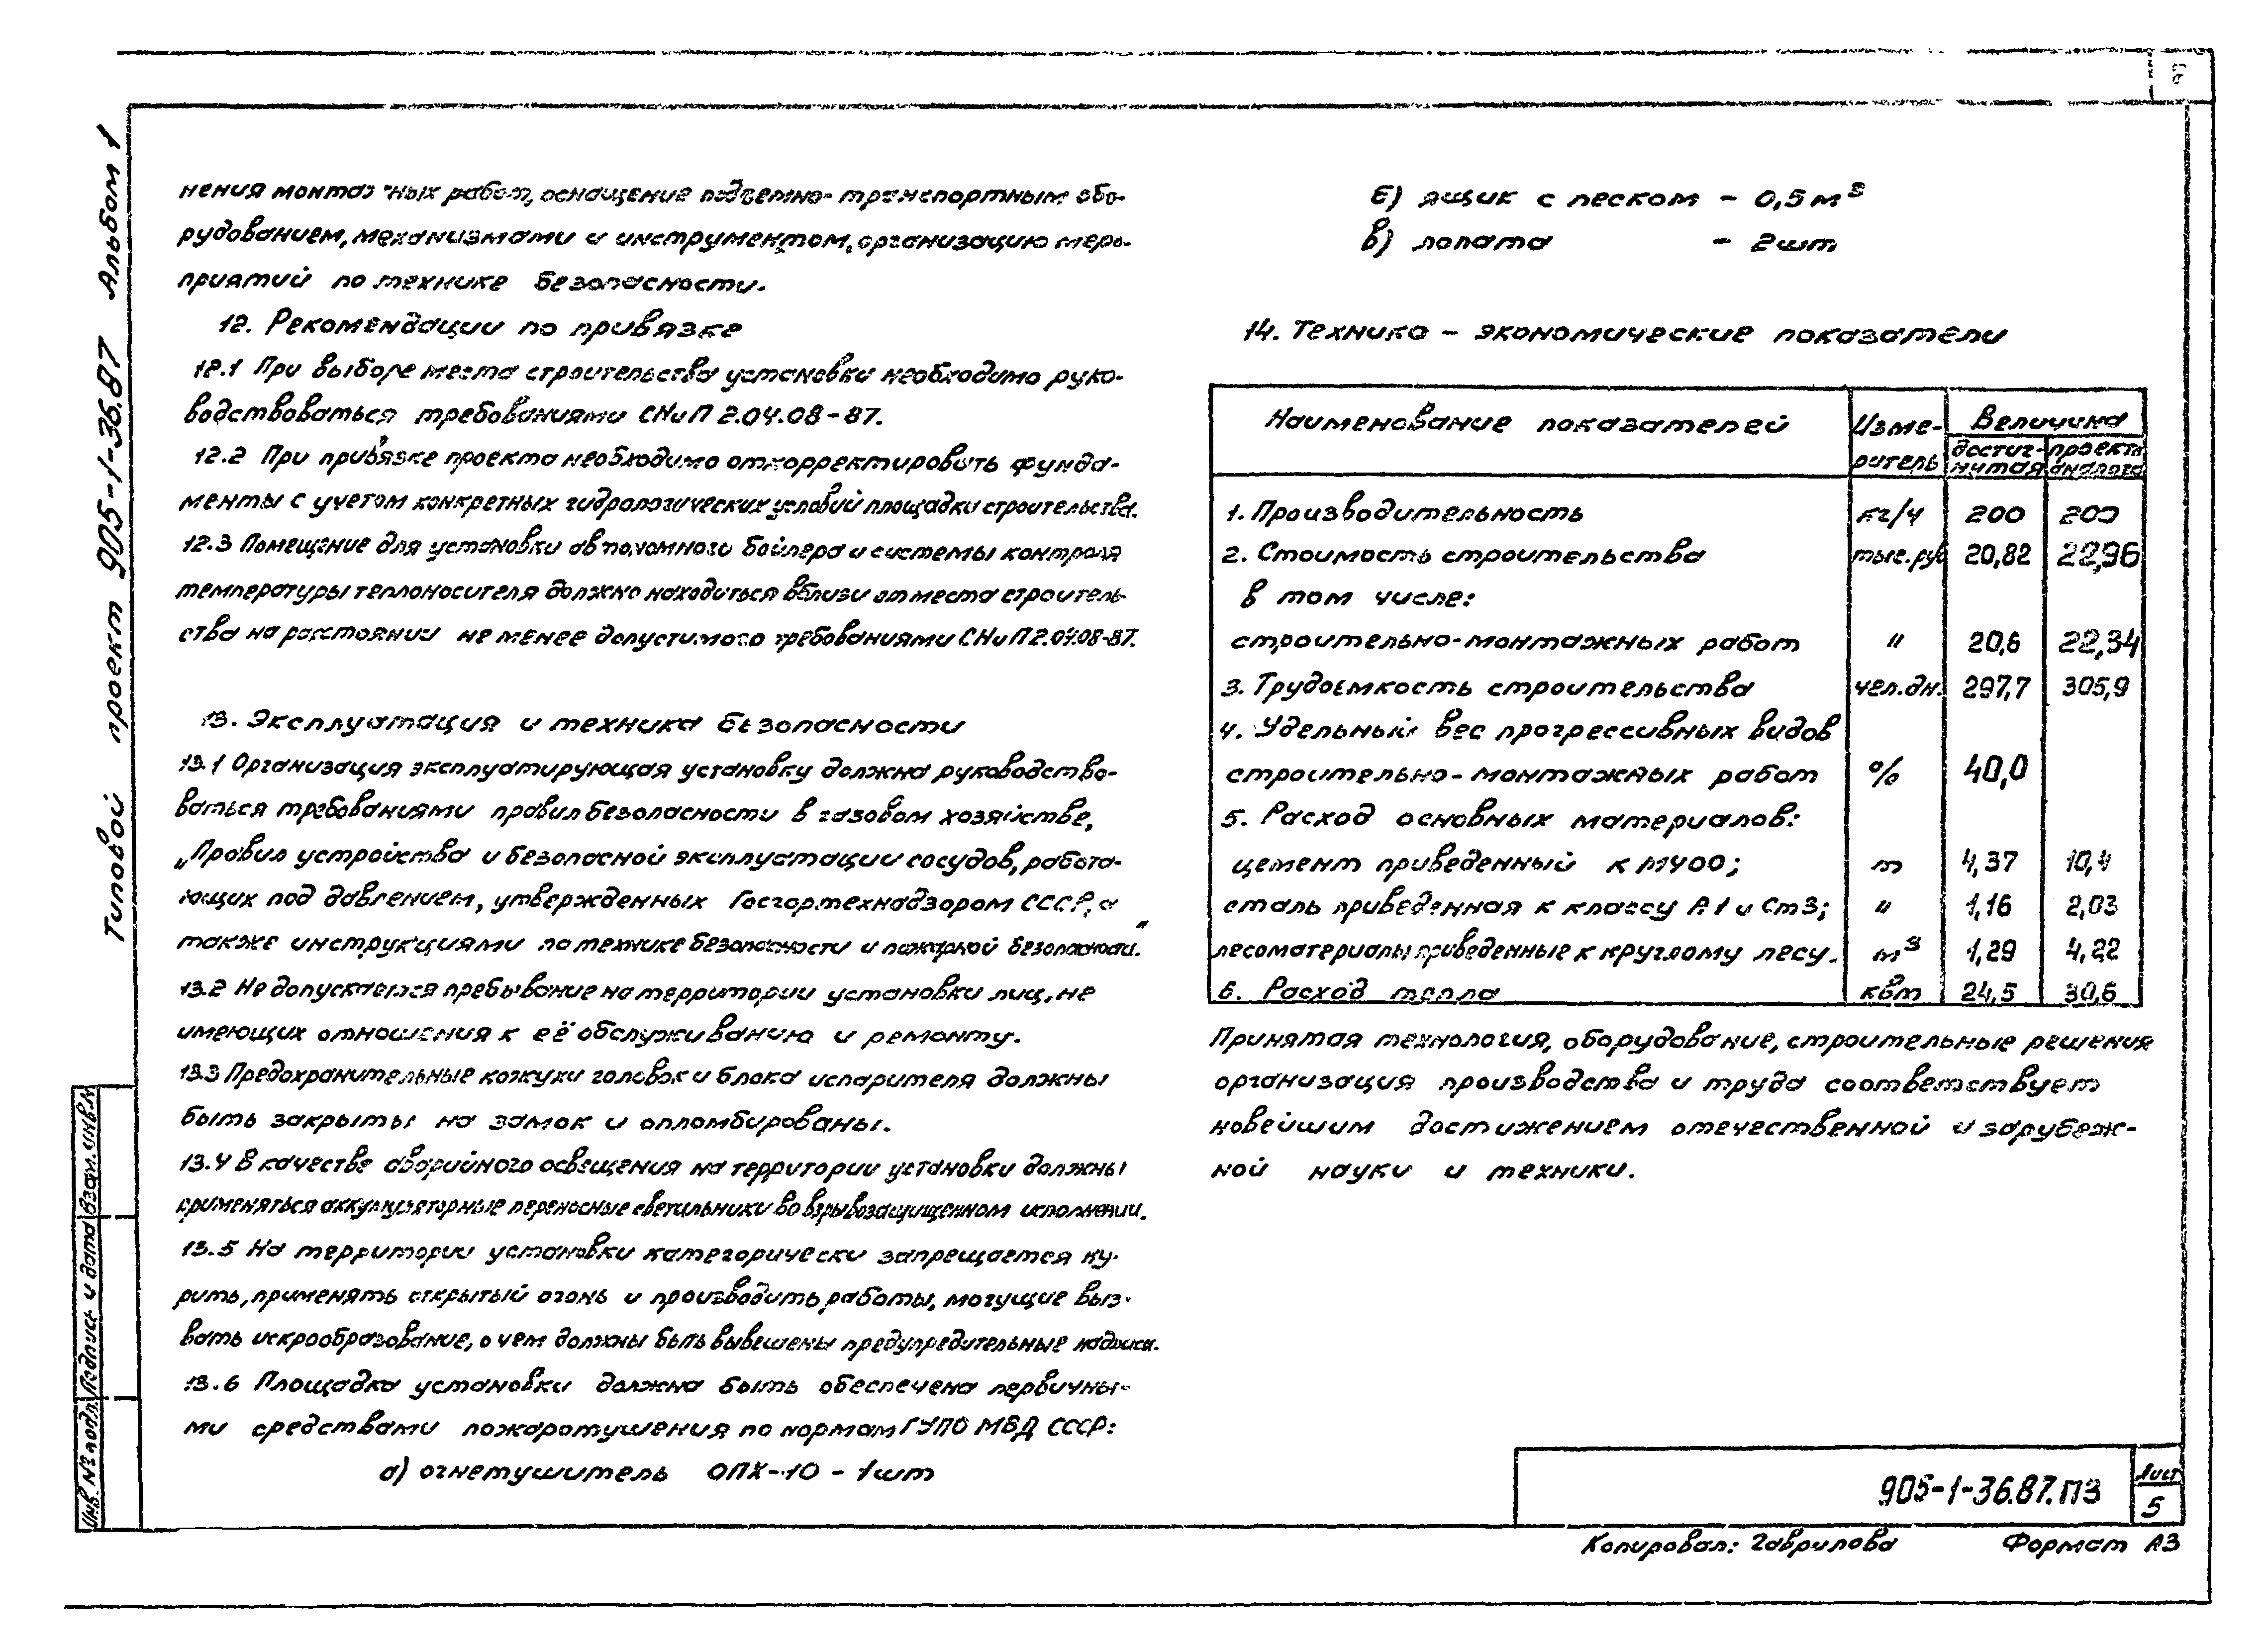 Типовой проект 905-1-36.87 Альбом 1
нения монтажных работ, оснащение подъемно-транспортным обо-
рудованием, механизмами и инструментом, организацию меро-
приятий по технике безопасности.
12. Рекомендации по привязке
12.1 При выборе места строительства установки необходимо руко-
водствоваться требованиями СНиП 2.04.08-87.
12.2 При привязке проекта необходимо откорректировать фунда-
менты с учетом конкретных гидрологических условий площадки строительства.
12.3 Помещение для установки автономного бойлера и системы контроля
температуры теплоносителя должно находиться вблизи от места строитель-
ства на расстоянии не менее допустимого требованиями СНиП 2.04.08-87.
13. Эксплуатация и техника безопасности
13.1 Организация эксплуатирующая установку должна руководство-
ваться требованиями правил безопасности в газовом хозяйстве,
„Правил устройства и безопасной эксплуатации сосудов, работа-
ющих под давлением, утвержденных Госгортехнадзором СССР, а
также инструкциями по технике безопасности и пожарной безопасности."
13.2 Не допускается пребывание на территории установки лиц, не
имеющих отношения к её обслуживанию и ремонту.
13.3 Предохранительные кожухи головок и блока испарителя должны
быть закрыты на замок и опломбированы.
13.4 В качестве аварийного освещения на территории установки должны
применяться аккумуляторные переносные светильники во взрывозащищенном исполнении.
13.5 На территории установки категорически запрещается ку-
рить, применять открытый огонь и производить работы, могущие выз-
вать искрообразование, о чем должны быть вывешены предупредительные надписи.
13.6 Площадка установки должна быть обеспечена первичны-
ми средствами пожаротушения по нормам ГУПО МВД СССР:
а) огнетушитель ОПХ-10 - 1шт
б) ящик с песком - 0,5м³
в) лопата - 2шт
14. Технико - экономические показатели
Наименование показателей Изме-ритель Величина
достиг-нутая проекта аналога
1. Производительность кг/ч 200 200
2. Стоимость строительства тыс.руб 20,82 22,96
в том числе:
строительно-монтажных работ " 20,6 22,34
3. Трудоемкость строительства чел.дн. 297,7 305,9
4. Удельный вес прогрессивных видов
строительно-монтажных работ % 40,0
5. Расход основных материалов:
цемент приведенный к М400; т 4,37 10,4
сталь приведенная к классу А1 и Ст3; " 1,16 2,03
лесоматериалы приведенные к круглому лесу. м³ 1,29 4,22
6. Расход тепла квт 24,5 30,6
Принятая технология, оборудование, строительные решения
организация производства и труда соответствует
новейшим достижением отечественной и зарубеж-
ной науки и техники.
Инв. № подл. Подпись и дата Взам. инв. №
905-1-36.87.ПЗ
Лист
5
Копировал: Гаврилова Формат А3